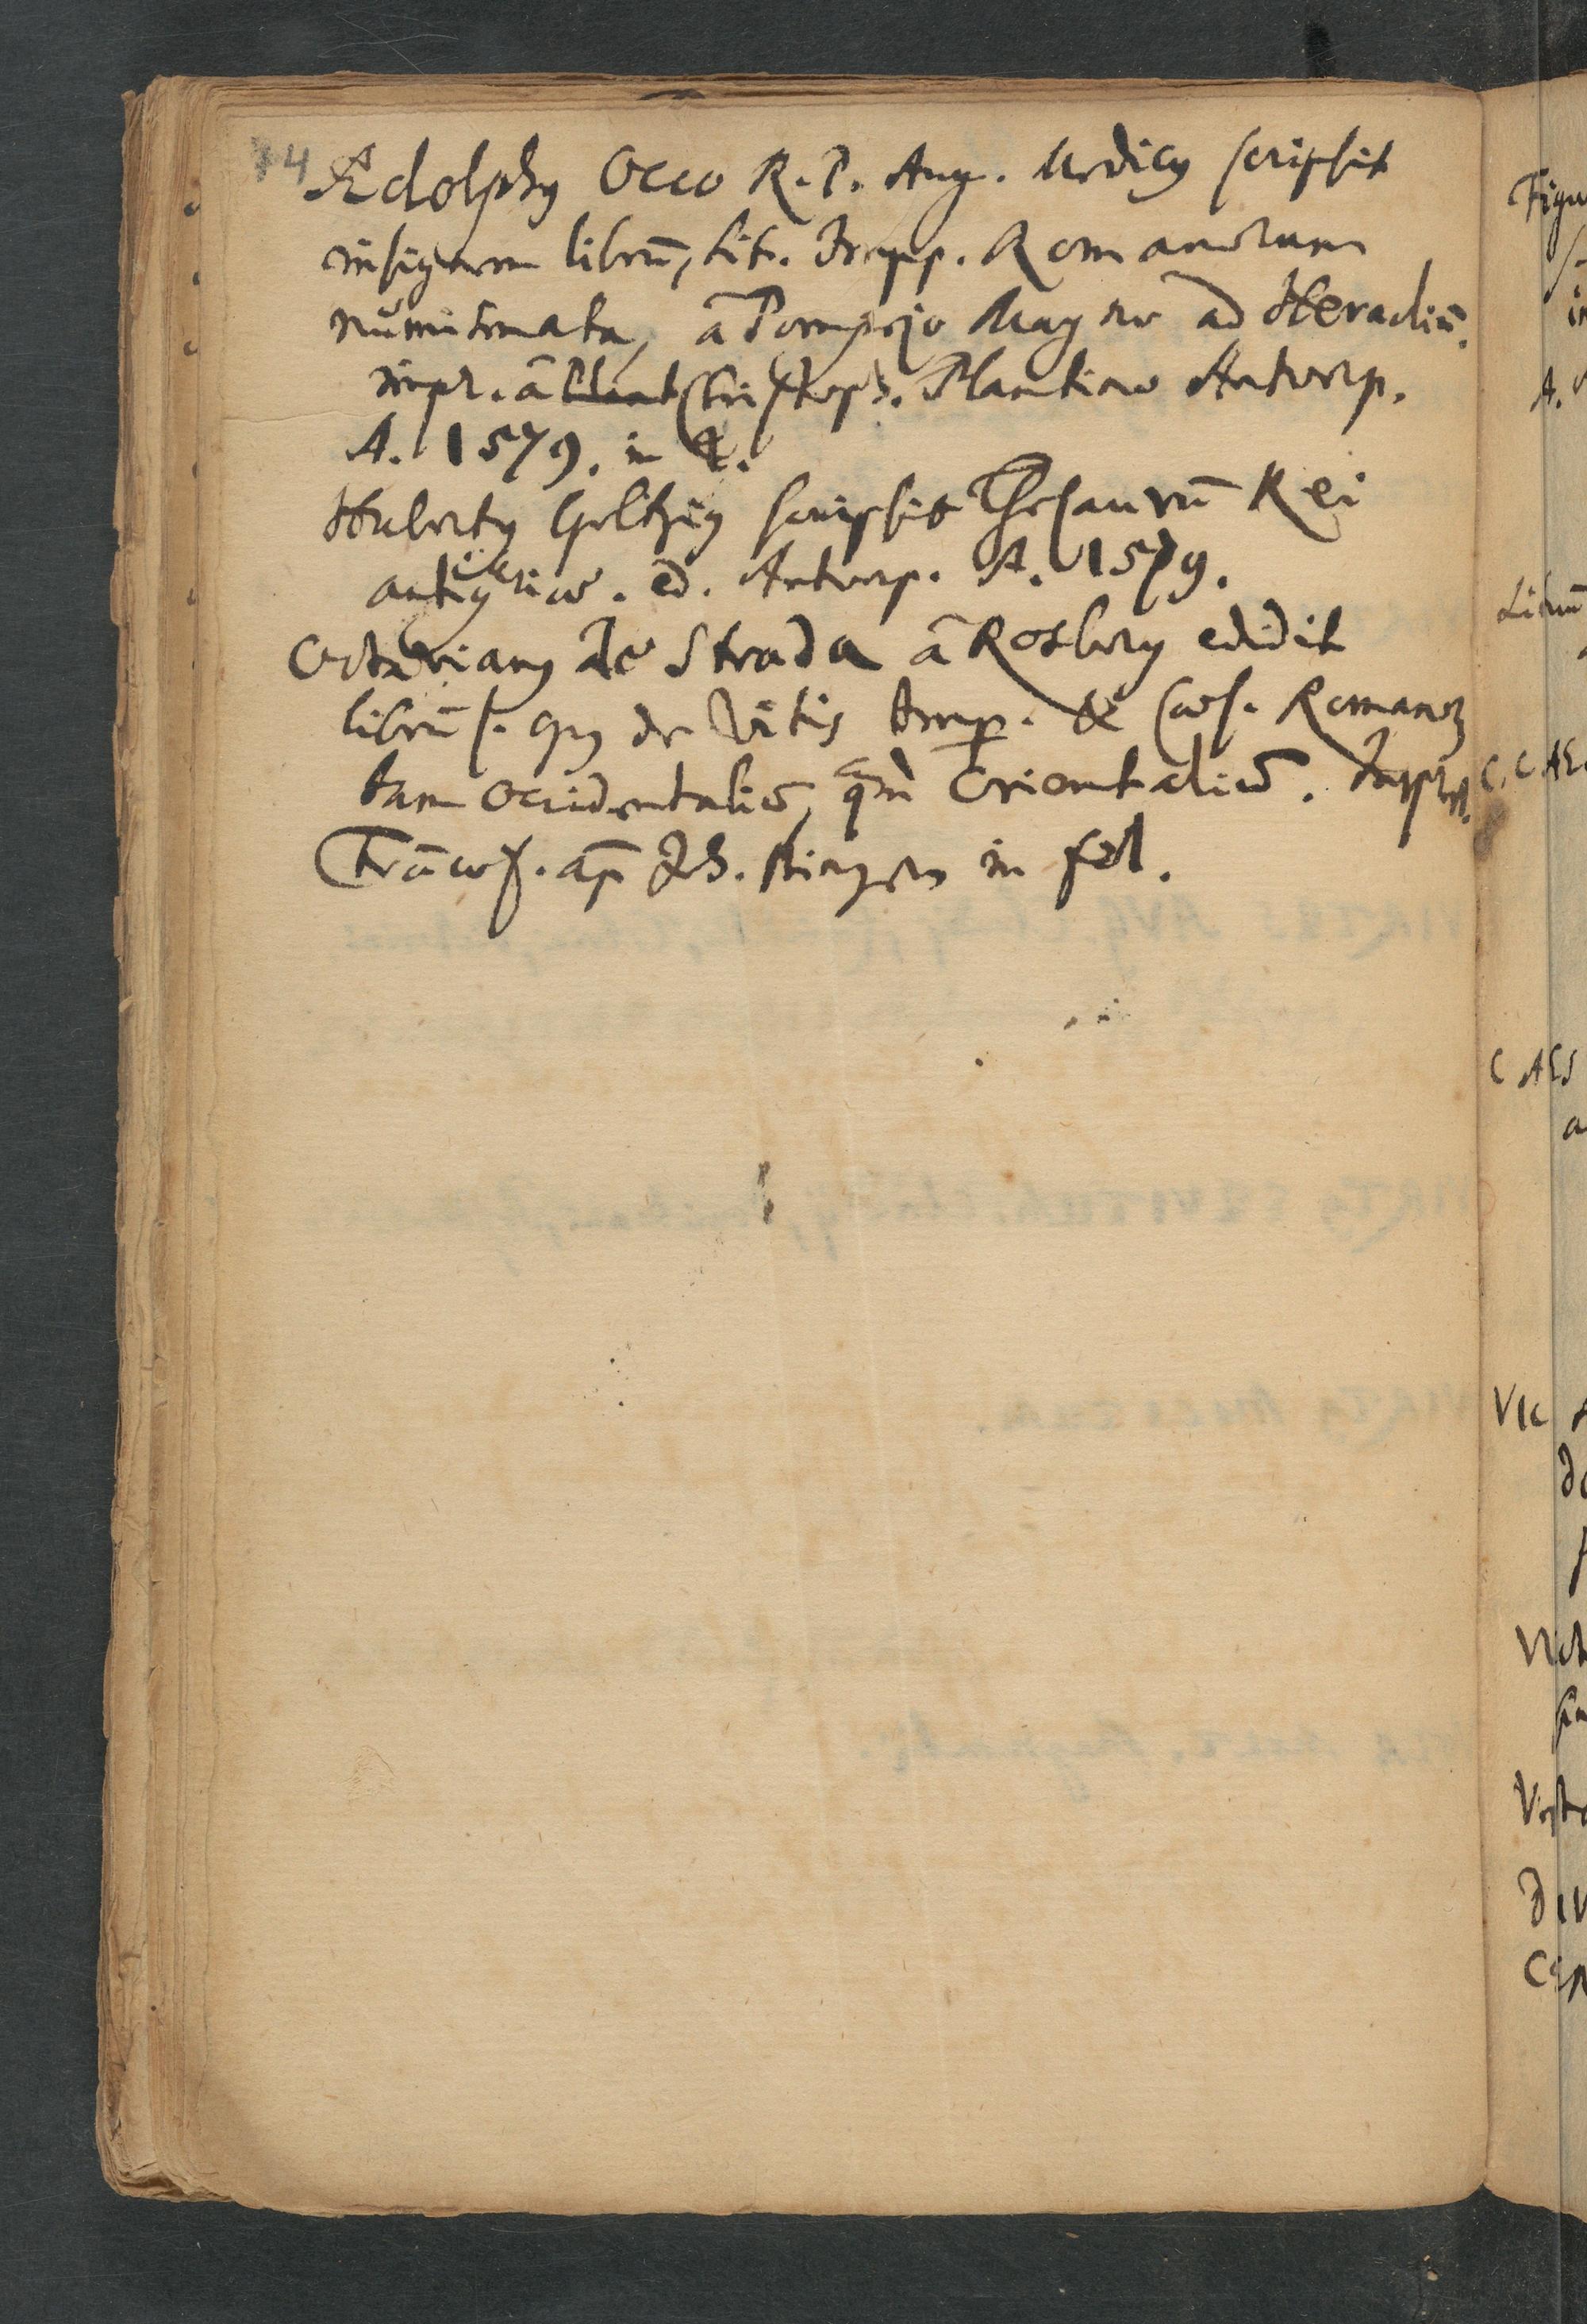 14 Adolphꝰ Occo R. P. Aug. Medicꝰ scripsit
insignem librū, tit. Impp. Romanorum
numismata, a Pompejo Magno ad Heracliū.
impr. a Plant Christoph. Plantino Antverp.
A. 1579. in 4.
Hubertꝰ Goltziꝰ scripsit Thesaurū Rei
antiquariae. ed. Antverp. A. 1579.
Octavianꝰ de Strada a Rosberg edidit
librū s. de Vitis Imp. & Caes. Romanoꝝ
tam Occidentaliū, quàm Orientaliū. Impress.
Francof. ap. in fol.